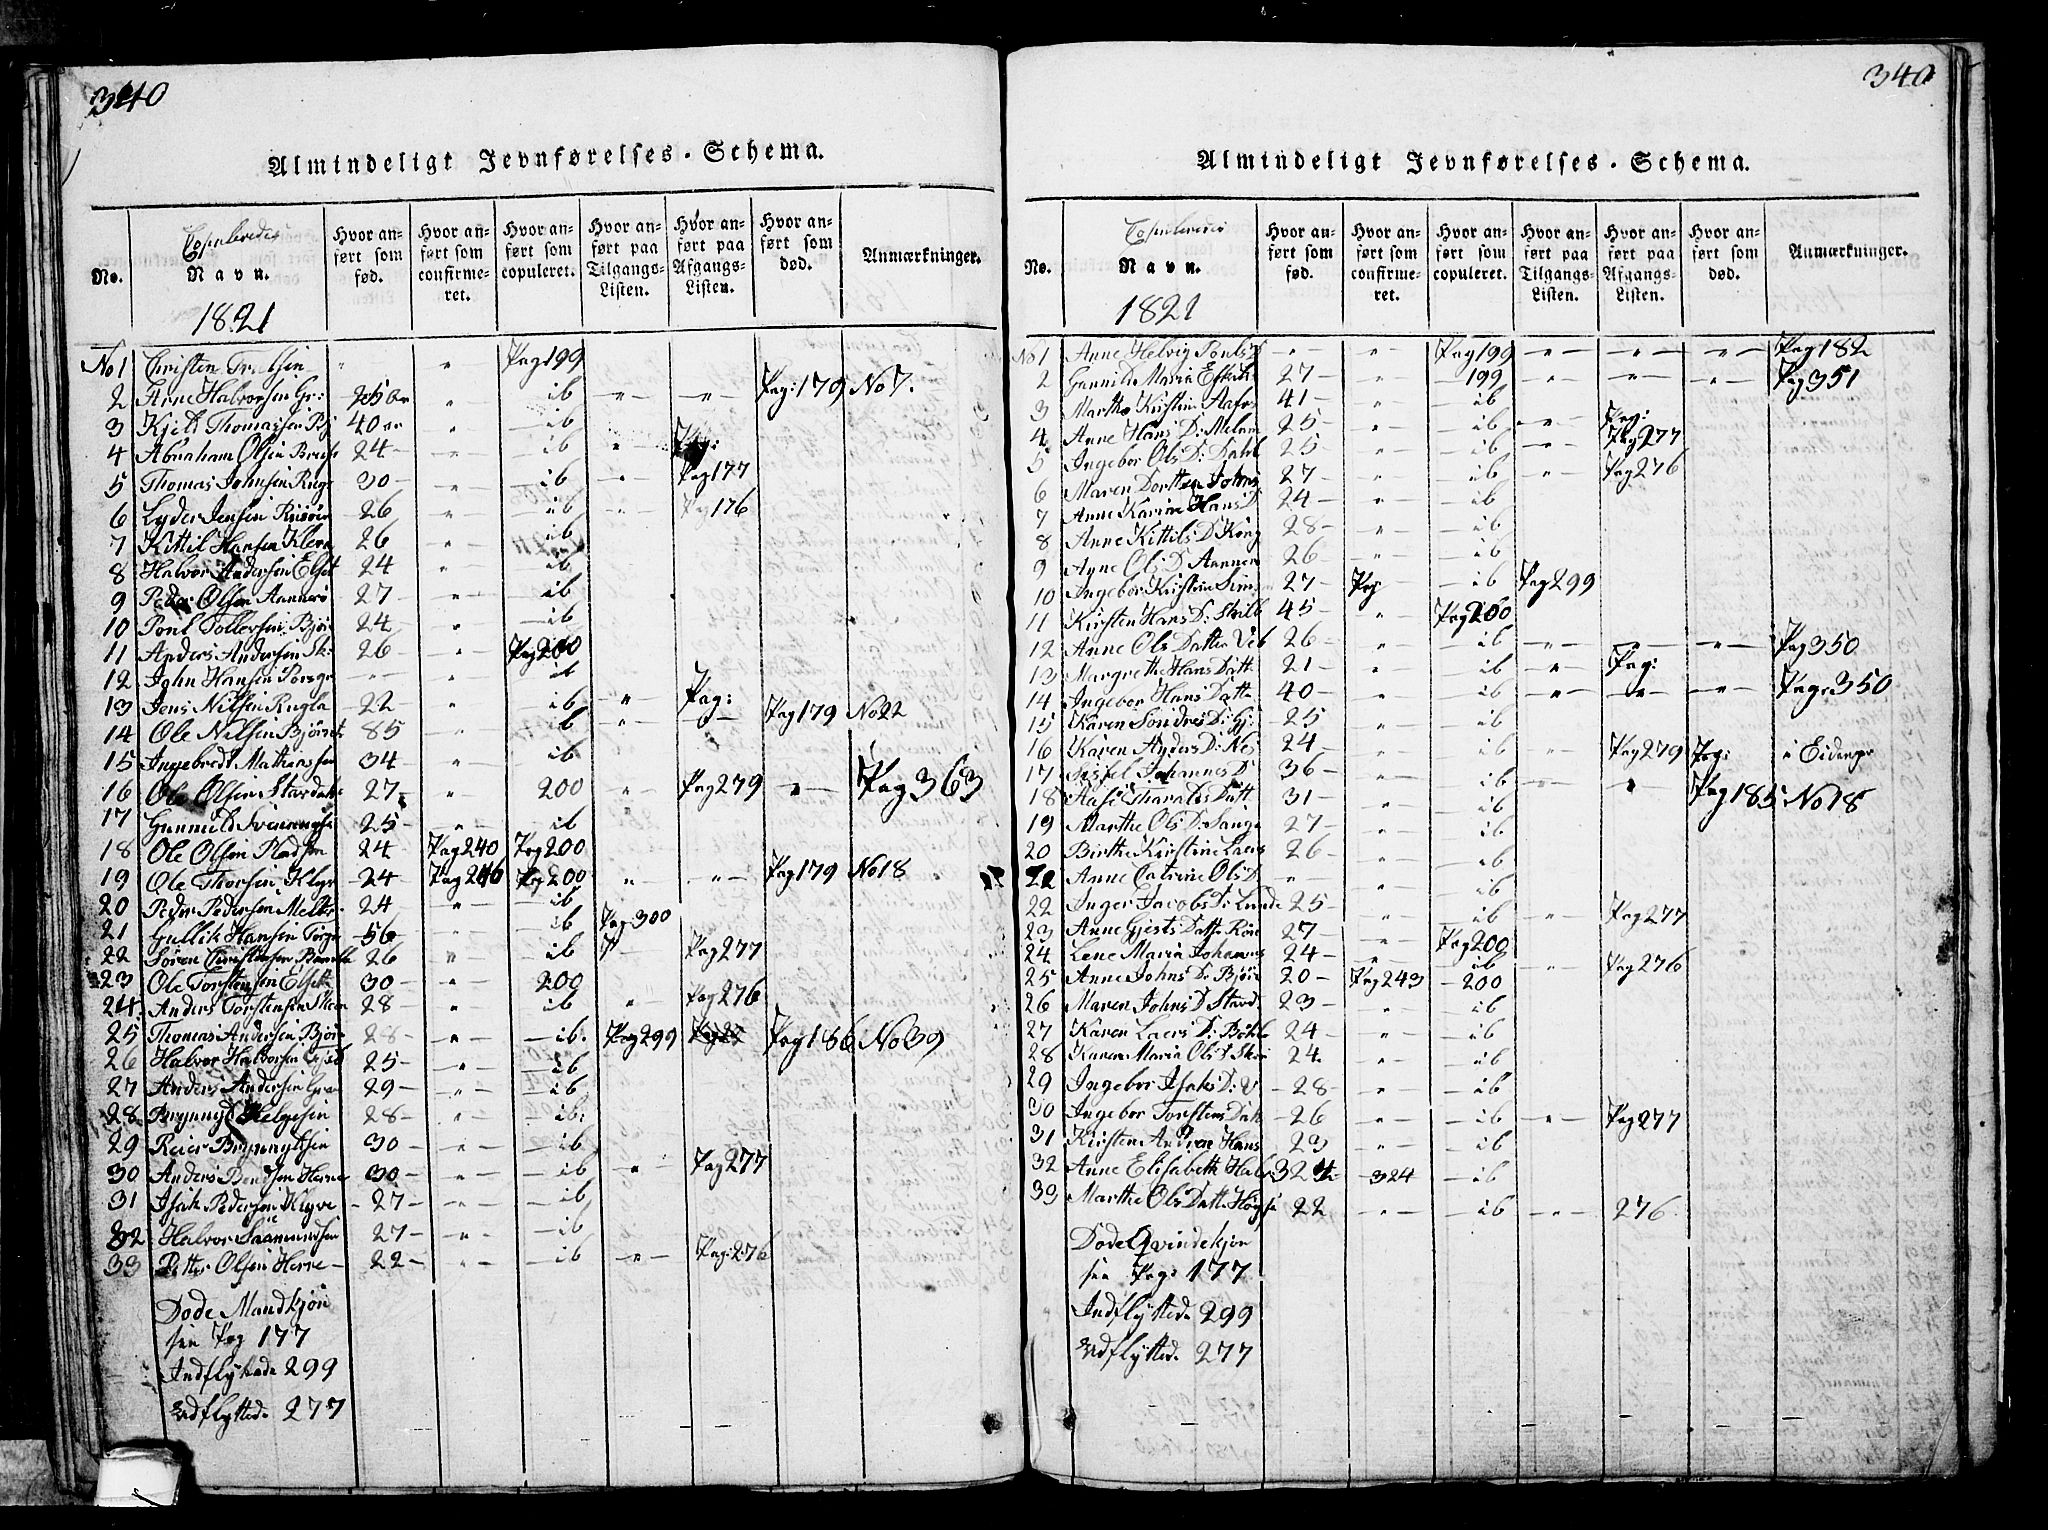 340
Almindeligt Jevnførelses-Schema.
No.
Copulerede
Navn.
1821
Hvor anført som fød.
Hvor anført som confirmeret.
Hvor anført som copuleret.
Hvor anført paa Tilgangs-Listen.
Hvor anført paa Afgangs-Listen.
Hvor anført som død.
Anmærkninger.
No 1 Christen " " Pag 199
2 Arne Halvorsen Gr: " ib " " Pag: 179 No 7.
3 Kjeld Thomassen Bj 40 " ib
4 Abraham Olsen 24 " ib " Pag:
5 Thomas Johnsen Rugt 30 " ib " Pag 177
6 Lyder Jensen 26 " ib " Pag 176
7 Kittil Hansen Kleva 26 " ib
8 Halvor Andersen Elset 24 " ib
9 Peder Olsen Aannerø 27 " ib
10 Poul Tollevsen Bjør 24 " ib
11 Anders Andersen Sk: 26 " Pag 200
12 John Hansen Porsgr " " ib
13 Jens Nilsen Rugla 22 " ib " Pag: Pag 179 No 22
14 Ole Nilsen Bjørnt 85 " ib " "
15 Ingebredt Mathiassen 34 " ib
16 Ole Olsen Stavdahl 27 " 200 " Pag 279 " Pag 363
17 Gunnuld 25 " ib
18 Ole Olsen 24 Pag 240 Pag 200
19 Ole Thorsen Klyv 24 Pag Pag 200 " " Pag 179 No 18
20 Peder Pedersen 24 " ib
21 Gullik Hansen 56 " ib Pag: 300
22 Søren Christensen Bamble 26 " ib Pag 277
23 Ole Torstensen Elset 30 " 200
24 Anders Torstensen Skien 28 " ib " Pag 276
25 Thomas Andersen Bjør 28 " ib. Pag 299 Pag 186 No 39
26 Halvor Halvorsen 25 " ib
27 Anders Andersen 29 " ib
28 Brynnyld Helgesen 28 " ib:
29 Reier Brynnyldsen 30 " ib
30 Anders Bendsen Herre 30 " ib " Pag 277
31 Isak Pedersen Klyve 27 " ib
32 Halvor Saamundsen 27 " ib
33 Petter Olsen Herre 22 " ib " Pag: 276
Dode Mandkjøn
see Pag 177
Indflyttede 299
Udflyttede 277
340
Almindeligt Jevnførelses-Schema.
No.
Copulerede
Navn.
1821
Hvor anført som fød.
Hvor anført som confirmeret.
Hvor anført som copuleret.
Hvor anført paa Tilgangs-Listen.
Hvor anført paa Afgangs-Listen.
Hvor anført som død.
Anmærkninger.
No 1 Anne Helvig Pouls D " " Pag 199 " " " Pag 182
2 Gunnild Maria 27 " 199 " " " Pag 351
3 Marthe Kirstine 41 " ib
4 Anne Hans D: Melum 25 " ib " Pag:
5 Ingebor Ols D: Dahl 25 " ib " Pag 277
6 Maren Dorthea Johns 27 " ib " Pag 276
7 Anne Karine Hans D 24 " ib
8 Anne Kittils D Kong 28 " ib
9 Anne Ols D Aanner 26 " ib
10 Ingebor Kirstine Sim 27 Pag ib Pag 299
11 Kirsten Hans D: 45 " Pag 200
12 Anne Ols Datter Veb 26 " ib " " " Pag 350
13 Margrethe Hans Datt 21 " ib " Pag:
14 Ingebor Hans Datt 40 " ib " " " Pag: 350
15 Karen Sondres D: Gj: 25 " ib
16 Karen Anders D: Nes 24 " ib " Pag 279 Pag: i Eidanger
17 Sissel Johannes D 36 " ib " " Pag 185 No 18
18 Aase Haralds Datt 31 " ib
19 Marthe Ols D: 27 " ib
20 Birthe Kirstine Laers 26 " ib
21 Anne Catrine Ols D " " ib
22 Inger Jacobs D: Lunde 25 " ib " Pag 277
23 Anne Gjerts Datt 27 " Pag 200
24 Lene Maria Johannes 24 " ib " Pag 276
25 Anne Johns D: Bjørn 20 Pag 243 200
26 Maren Johns D Stavd 23 " ib
27 Karen Laers D: Bøhle 24 " ib
28 Karen Maria Ols D Skie 24 " ib
29 Ingebor Isaks D: V 28 " ib
30 Ingebor Torstens Datt 26 " ib " Pag 277
31 Kirsten Andrea Hans 23 " ib
32 Anne Elisabeth Halv 324 324 ib
33 Marthe Ols Datt 22 " ib " 276
Dode Qvindekjøn
see Pag: 177
Indflyttede 299
Udflyttede 277